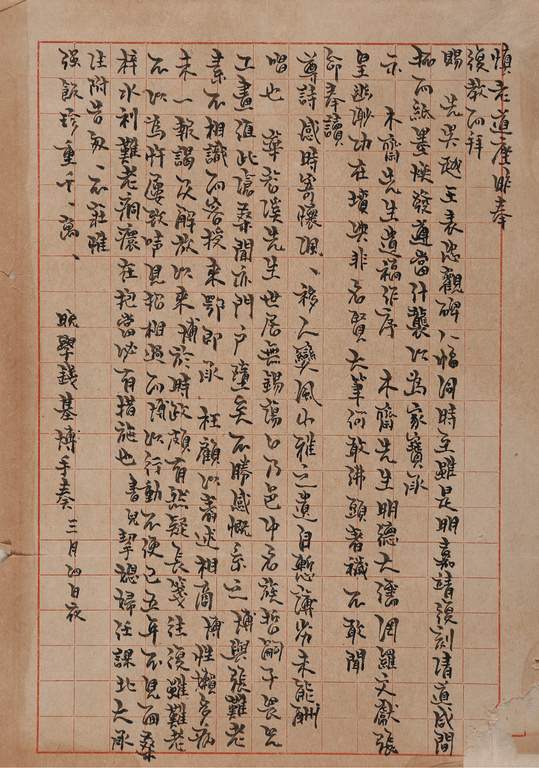 慎老道座昨奉
復教而拜
賜 先吴越王表忠觀碑八幅洞時立雖是明嘉靖復刻清道咸間
拓而紙墨煥發適當什襲以為家寶承
示 木齋先生遺稿作序 木齋先生明德大儒网羅文獻張
皇幽渺功在墳典非名賢大筆何敢佛頭著穢不敢聞
命奉讀
尊詩感時寄懷渢、移人變風小雅之遺自慙譾劣未能酬
唱也 華若溪先生世居無錫蕩口乃邑中名族哲嗣子畏
工畫值此滄桑聞亦門戶墮矣不勝感慨系之 博與張難老
素不相識而容授來鄂即承 枉顧以著述相商 博性懶多病
未一報謁及解放以來 博於時政頗有然疑長箋往復難老
不以為忤屢致嘑見招相過而博以行動不便已五年不見面矣
梓水利難老痌瘝在抱當必有措施也 書兒挈媳婦任課北大承
注附告匆、不莊惟
强飯珍重千、萬、
晚學錢基博手奏 三月四日夜